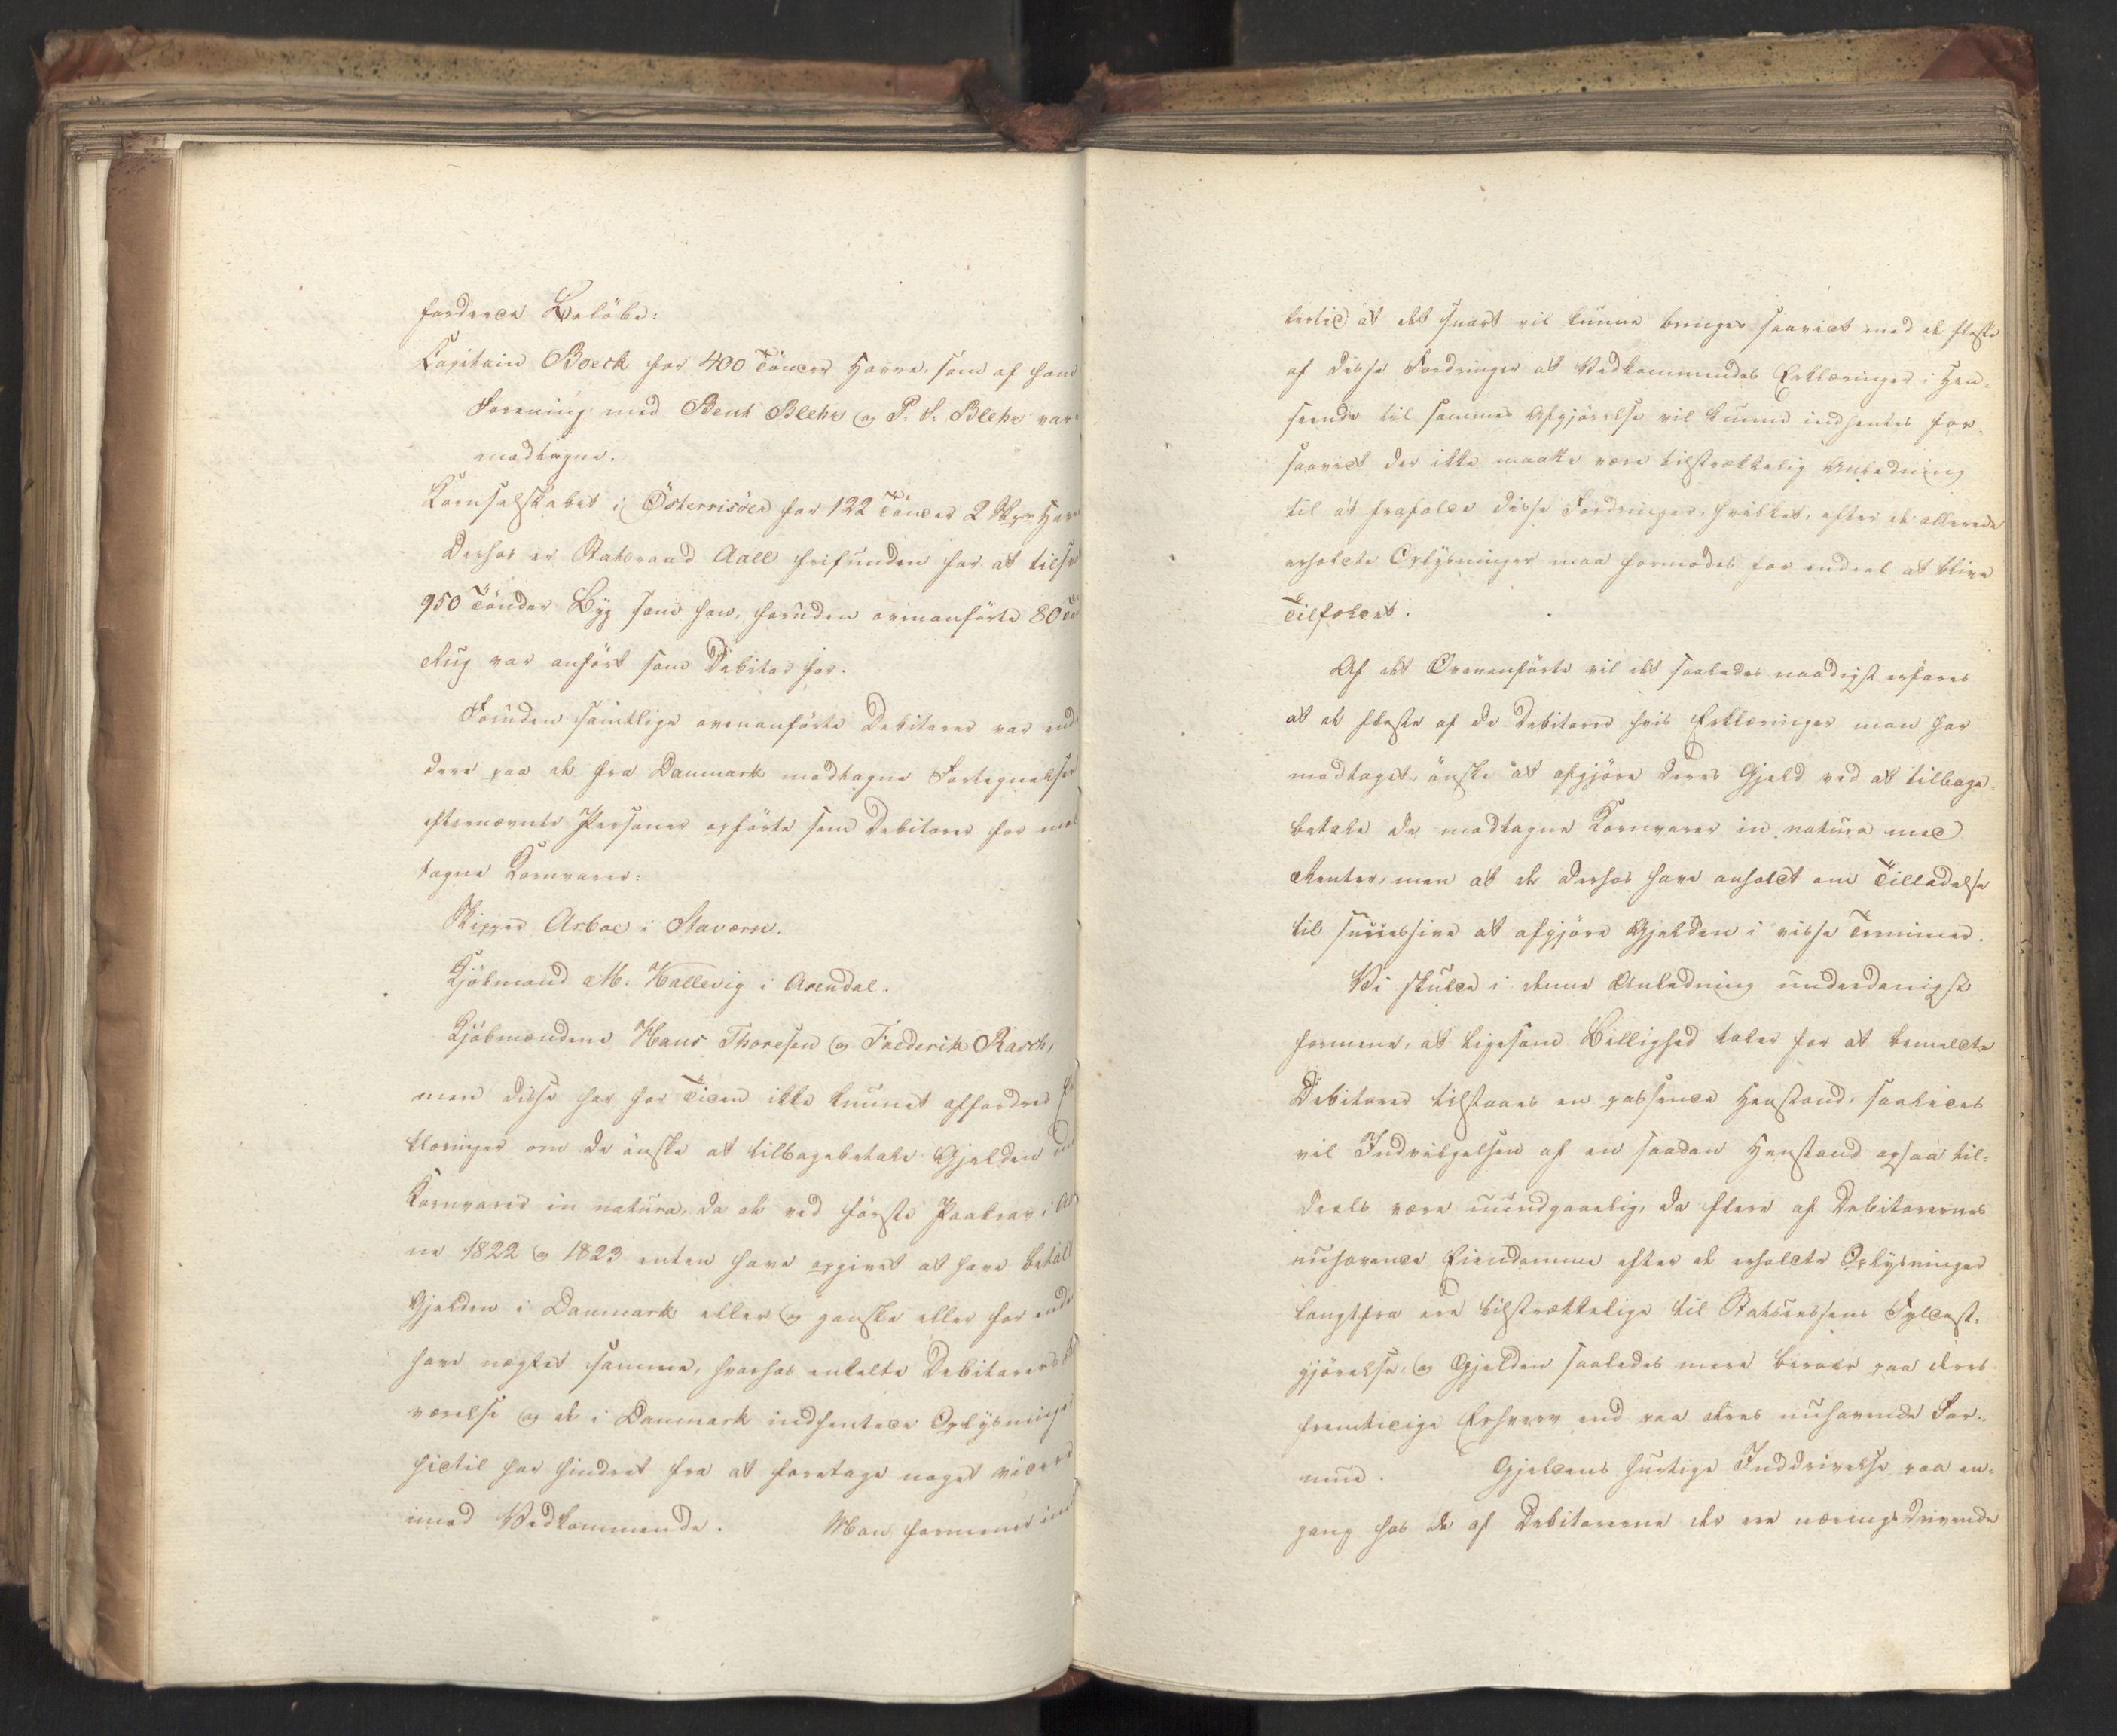 fordrede Beløbe:
Capitain Boeck for 400 Tönder Havre, som af ham
Forening med Bent Blehr og P. S. Blehr vare
modtagne.
Kornselskabet i Österrisöer for 122 Tönder 2 Skpr Hav
Derhos er Statsraad Aall frifunden for at tilsv
950 Tönder Byg som han, foruden ovenanförte 80 Td
Rug var anfört som Debitor for.
Foruden samtlige ovenanförte Debitorer var end
dere paa de fra Danmark modtagne Fortegnelser
efternævnte Personer opförte som Debitorer for mod
tagne Kornvarer:
Skipper Arboe i Stavern.
Kjöbmand M. Kallevig i Arendal.
Kjöbmændene Hans Thoresen og Frederik Rasch,
men disse har for Tiden ikke kunnet affordres Er
klæringer om de önske at tilbagebetale Gjelden ud
Kornvarer in natura, da de ved förste Paakrav i Aa
ne 1822 og 1823 enten have opgivet at have betal
Gjelden i Danmark eller og ganske eller for ende
have nægtet samme, hvorhos enkelte Debitorers
værelse og de i Danmark indhentede Oplysninger
hidtil har hindret fra at foretage noget videre
imod Vedkommende. Man formener im
lertid at det snart vil kunne bringes saavidt med de fleste
af disse Fordringer at Vedkommendes Erklæringer i Hen-
seende til sammes Afgjörelse vil kunne indhentes for-
saavidt der ikke maatte være tilstrækkelig Anledning
til at frafalde disse Fordringer, hvilket, efter de allerede
erholdte Oplysninger maa formodes for endeel at blive
Tilfældet.
Af det Ovenanförte vil det saaledes naadigst erfares
at de fleste af de Debitorer hvis Erklæringer man har
modtaget, önske at afgjöre deres Gjeld ved at tilbage-
betale de modtagne Kornvarer in natura med
Renter, men at de derhos have anholdt om Tilladelse
til successive at afgjöre Gjelden i visse Terminer.
Vi skulde i denne Anledning underdanigst
formene, at ligesom Billighed taler for at bemeldte
Debitorer tilstaaes en passende Henstand, saaledes
vil Indvilgelsen af en saadan Henstand ogsaa til-
deels være uundgaaelig, da flere af Debitorernes
nuhavende Eiendomme efter de erholdte Oplysninger
langtfra ere tilstrækkelige til Statscassens Fyldest-
gjörelse, og Gjelden saaledes mere beroer paa deres
fremtidige Erhverv end paa deres nuhavende For-
mue. Gjeldens hurtige Inddrivelse paa en-
gang hos de af Debitorerne der ere næringsdrivende